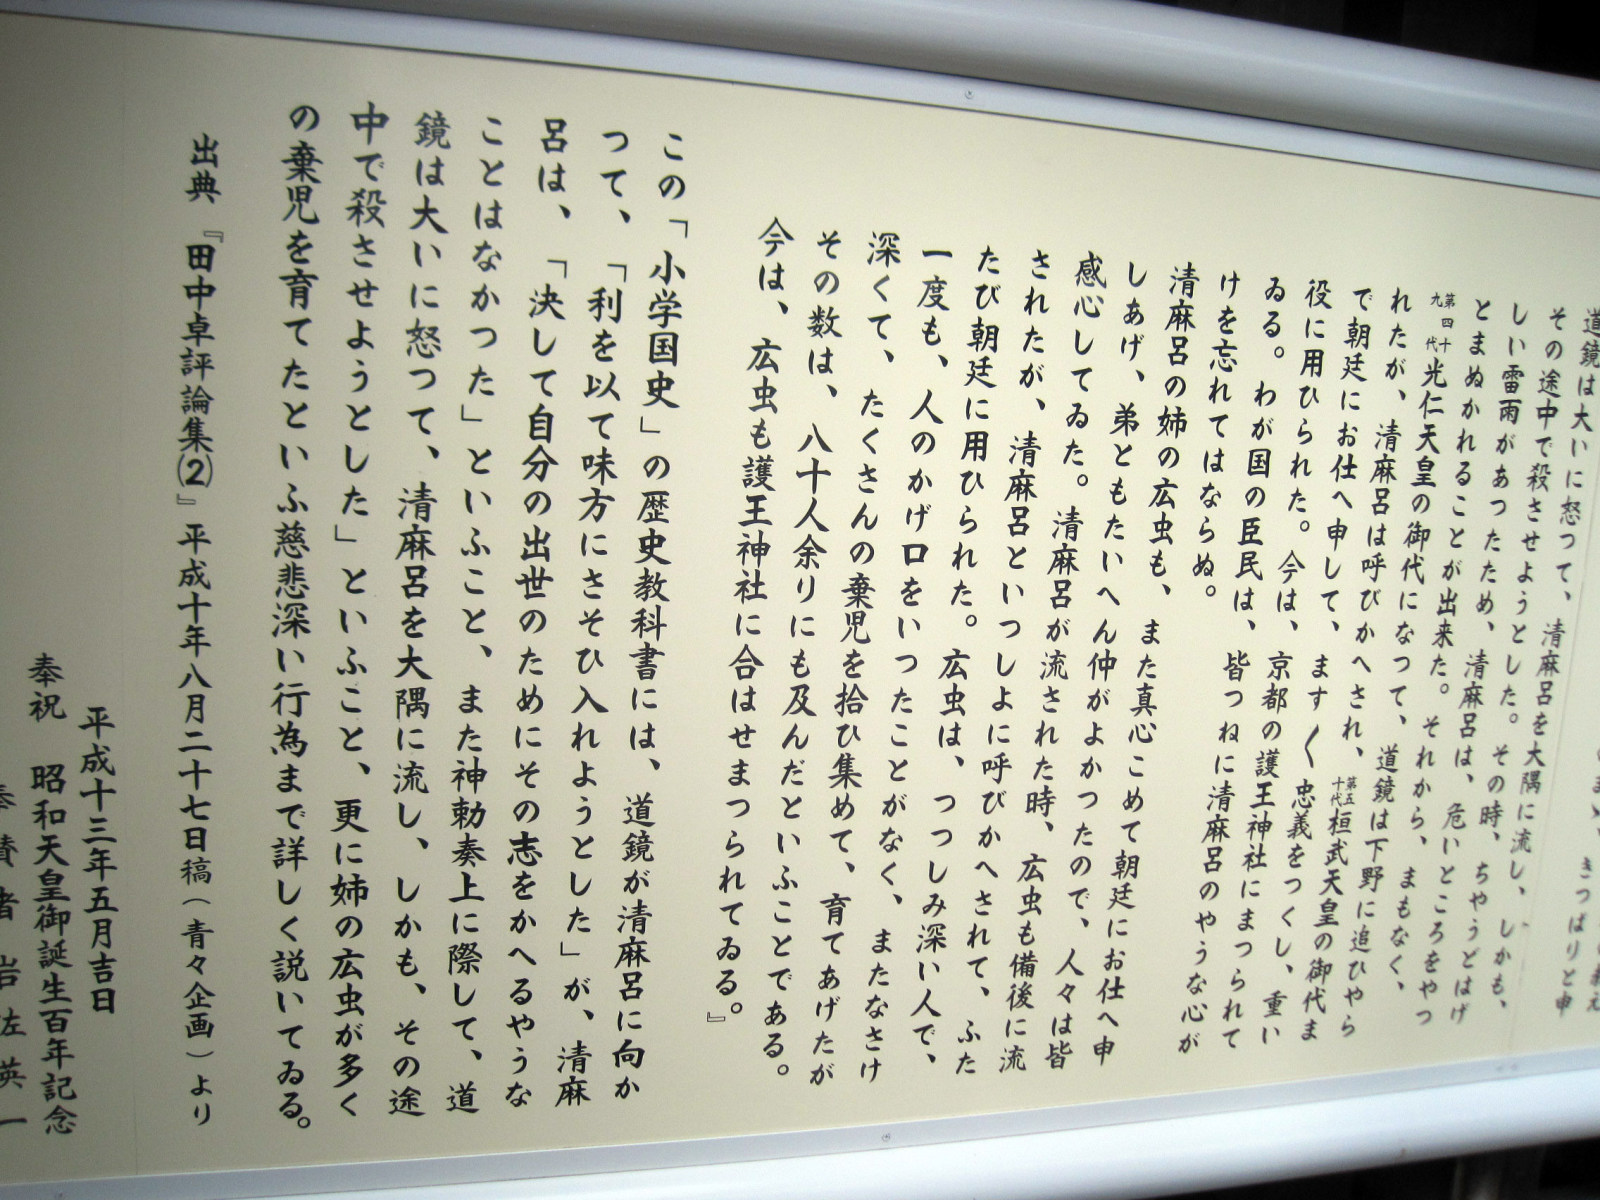 道鏡は大いに怒つて、清麻呂を大隅に流し、しかも、
その途中で殺させようとした。その時、ちやうどはげ
しい雷雨があつたため、清麻呂は、危いところをやつ
とまぬかれることが出来た。それから、まもなく、
第四十九代光仁天皇の御代になつて、道鏡は下野に追ひやら
れたが、清麻呂は呼びかへされ、第五十代桓武天皇の御代ま
で朝廷にお仕へ申して、ます〳〵忠義をつくし、重い
役に用ひられた。今は、京都の護王神社にまつられて
ゐる。わが国の臣民は、皆つねに清麻呂のやうな心が
けを忘れてはならぬ。
清麻呂の姉の広虫も、また真心こめて朝廷にお仕へ申
しあげ、弟ともたいへん仲がよかつたので、人々は皆
感心してゐた。清麻呂が流された時、広虫も備後に流
されたが、清麻呂といつしよに呼びかへされて、ふた
たび朝廷に用ひられた。広虫は、つつしみ深い人で、
一度も、人のかげ口をいつたことがなく、またなさけ
深くて、たくさんの棄児を拾ひ集めて、育てあげたが
その数は、八十人余りにも及んだといふことである。
今は、広虫も護王神社に合はせまつられてゐる。』
この「小学国史」の歴史教科書には、道鏡が清麻呂に向か
つて、「利を以て味方にさそひ入れようとした」が、清麻
呂は、「決して自分の出世のためにその志をかへるやうな
ことはなかつた」といふこと、また神勅奏上に際して、道
鏡は大いに怒つて、清麻呂を大隅に流し、しかも、その途
中で殺させようとした」といふこと、更に姉の広虫が多く
の棄児を育てたといふ慈悲深い行為まで詳しく説いてゐる。
出典『田中卓評論集(2)』平成十年八月二十七日稿(青々企画)より
平成十三年五月吉日
奉祝 昭和天皇御誕生百年記念
奉賛者 岩佐英一